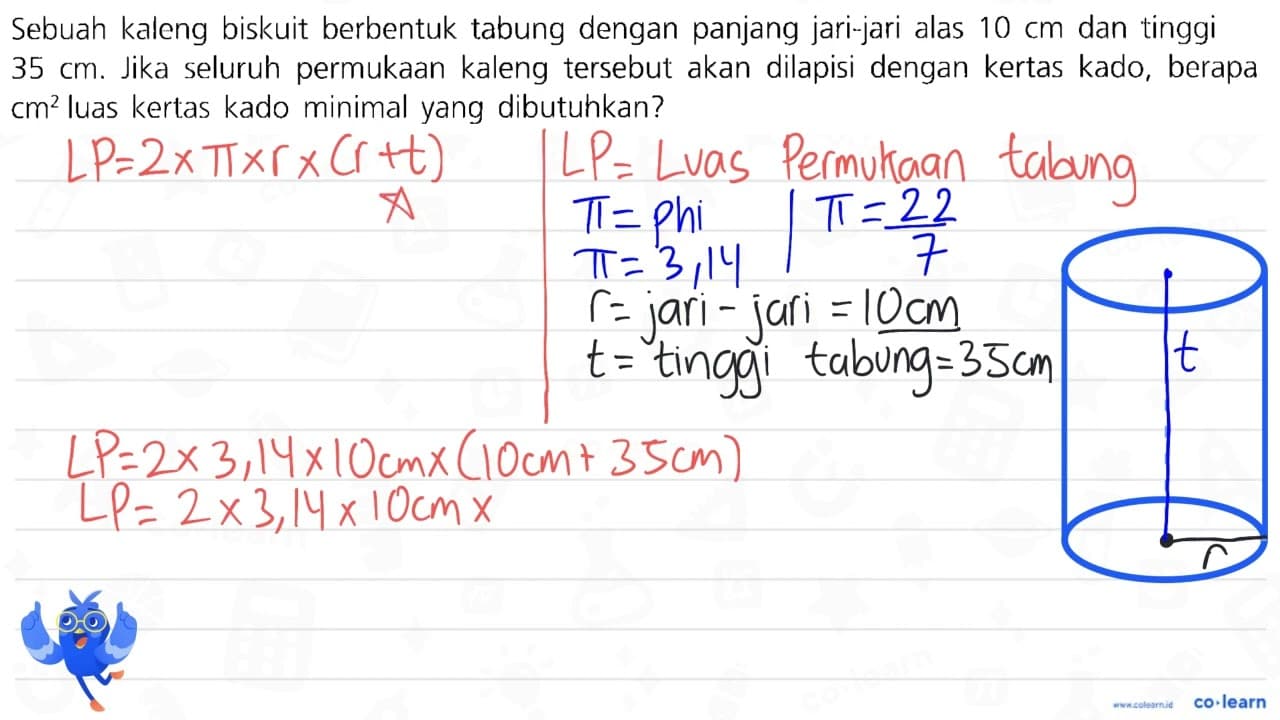 Sebuah kaleng biskuit berbentuk tabung dengan panjang jari-jari alas 10 cm dan tinggi
35 cm. Jika seluruh permukaan kaleng tersebut akan dilapisi dengan kertas kado, berapa
cm² luas kertas kado minimal yang dibutuhkan?
LP=2×π×r×(r+t)
LP= Luas Permukaan tabung
π= phi
π=22/7
π=3,14
r= jari-jari =10cm
t= tinggi tabung=35cm
t
LP=2×3,14×10cm×(10cm+35cm)
LP= 2×3,14×10cm×
r
www.colearn.id
co·learn